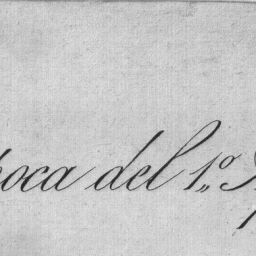 poca del 1º